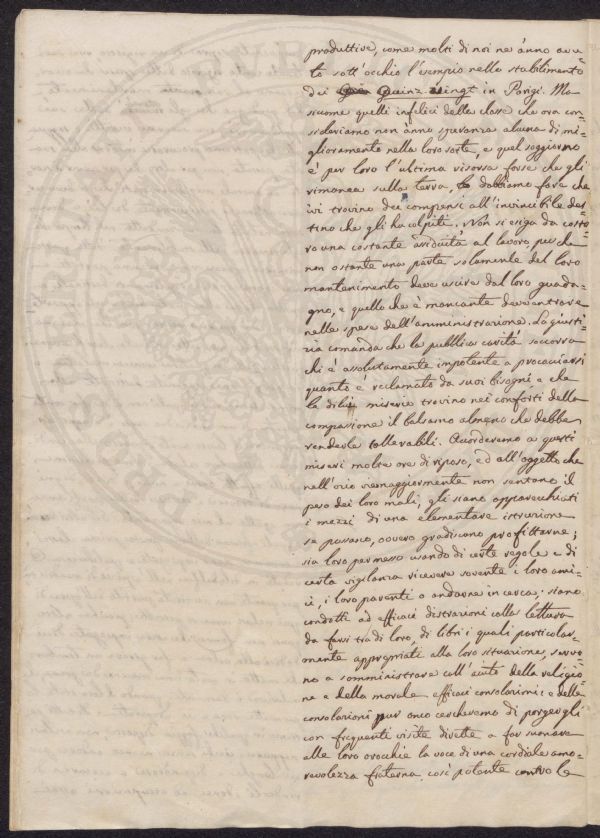 produttive, come molti di noi ne ànno avu=
to sott'occhio l'esempio nello stabilimento
dei Quinz vingt in Parigi. Ma
siccome quelli infelici della classe che ora con=
sideriamo non anno speranza alcuna di mi=
glioramento nella loro sorte, e quel soggiorno
è per loro l'ultima risorsa forse che gli
rimanea sulla terra, dobbiamo fare che
ivi trovino dei compensi all'invincibile des=
tino che gli ha colpiti. Non si esiga da costo=
ro una costante assiduità al lavoro, perchè
non ostante una parte solamente del loro
mantenimento deve uscire dal loro guada=
gno, e quello che è mancante deve entrare
nelle spese dell'amministrazione. La giusti=
zia comanda che la pubblica carità soccorra
chi è assolutamente impotente a procacciarsi
quanto è reclamato da suoi bisogni e che
le di lui miserie trovino nei conforti della
compasione il balsamo almeno che debba
renderle tollerabili. Accorderemo a questi
miseri molte ore di riposo, ed all'oggetto che
nell'ozio viemaggiormente non sentano il
peso dei loro mali, gli siano apparecchiati
i mezzi di una elementare istruzione
se possano, ovvero gradiscano profittarne;
sia loro permesso usando di certe regole e di
certa vigilanza ricevere sovente i loro ami=
ci, i loro parenti o andarne in cerca; siano
condotti ad efficaci distrazioni colla lettura
da farsi tra di loro, di libri i quali particolar=
mente appropriati alla loro situazione, servo=
no a somministrare coll'aiuto della religio=
ne e della morale efficaci consolazioni: e delle
consolazioni pur anco cercheremo di porgergli
con frequenti visite dirette a far suonare
alle loro orecchie la voce di una cordiale amo=
revolezza fraterna così potente contro le